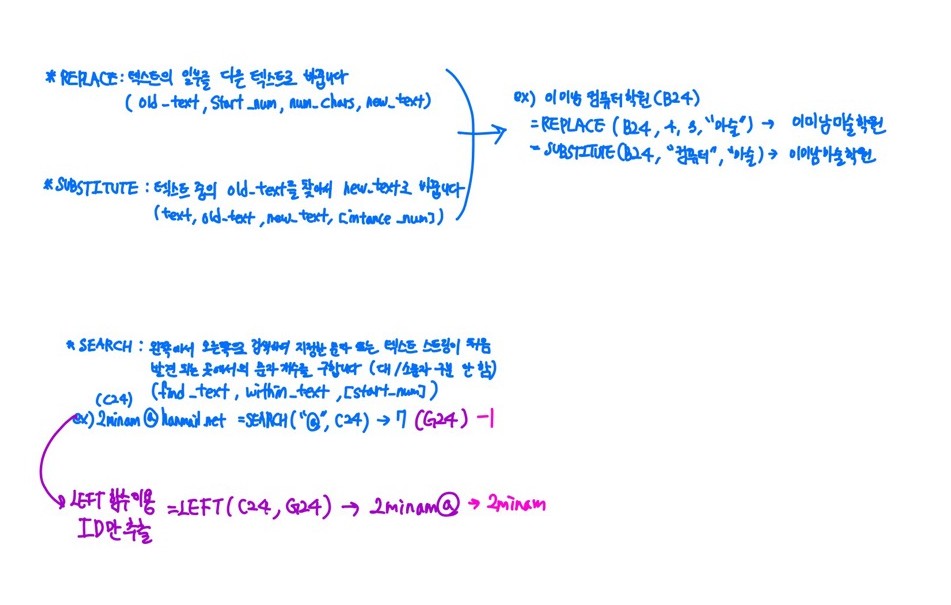 * REPLACE : 텍스트의 일부를 다른 텍스트로 바꿉니다
( old_text, Start_num, num_chars, new_text)
* SUBSTITUTE : 텍스트 중의 old_text를 찾아서 new_text로 바꿉니다
(text, old_text, new_text, [intance_num])
ex) 이미남 컴퓨터학원 (B24)
=REPLACE (B24, 4, 3, "미술") → 이미남미술학원
= SUBSTITUTE(B24, "컴퓨터", "미술) → 이미남미술학원
* SEARCH : 왼쪽에서 오른쪽으로 검색하여 지정한 문자 또는 텍스트 스트링이 처음
발견 되는 곳에서의 문자 개수를 구합니다 (대/소문자 구분 안 함)
(find_text, within_text, [start_num])
(C24)
ex) 2minam@hanmail.net =SEARCH("@", C24) → 7 (G24) -1
LEFT 함수 이용 =LEFT(C24, G24) → 2minam@ → 2minam
ID만 추출